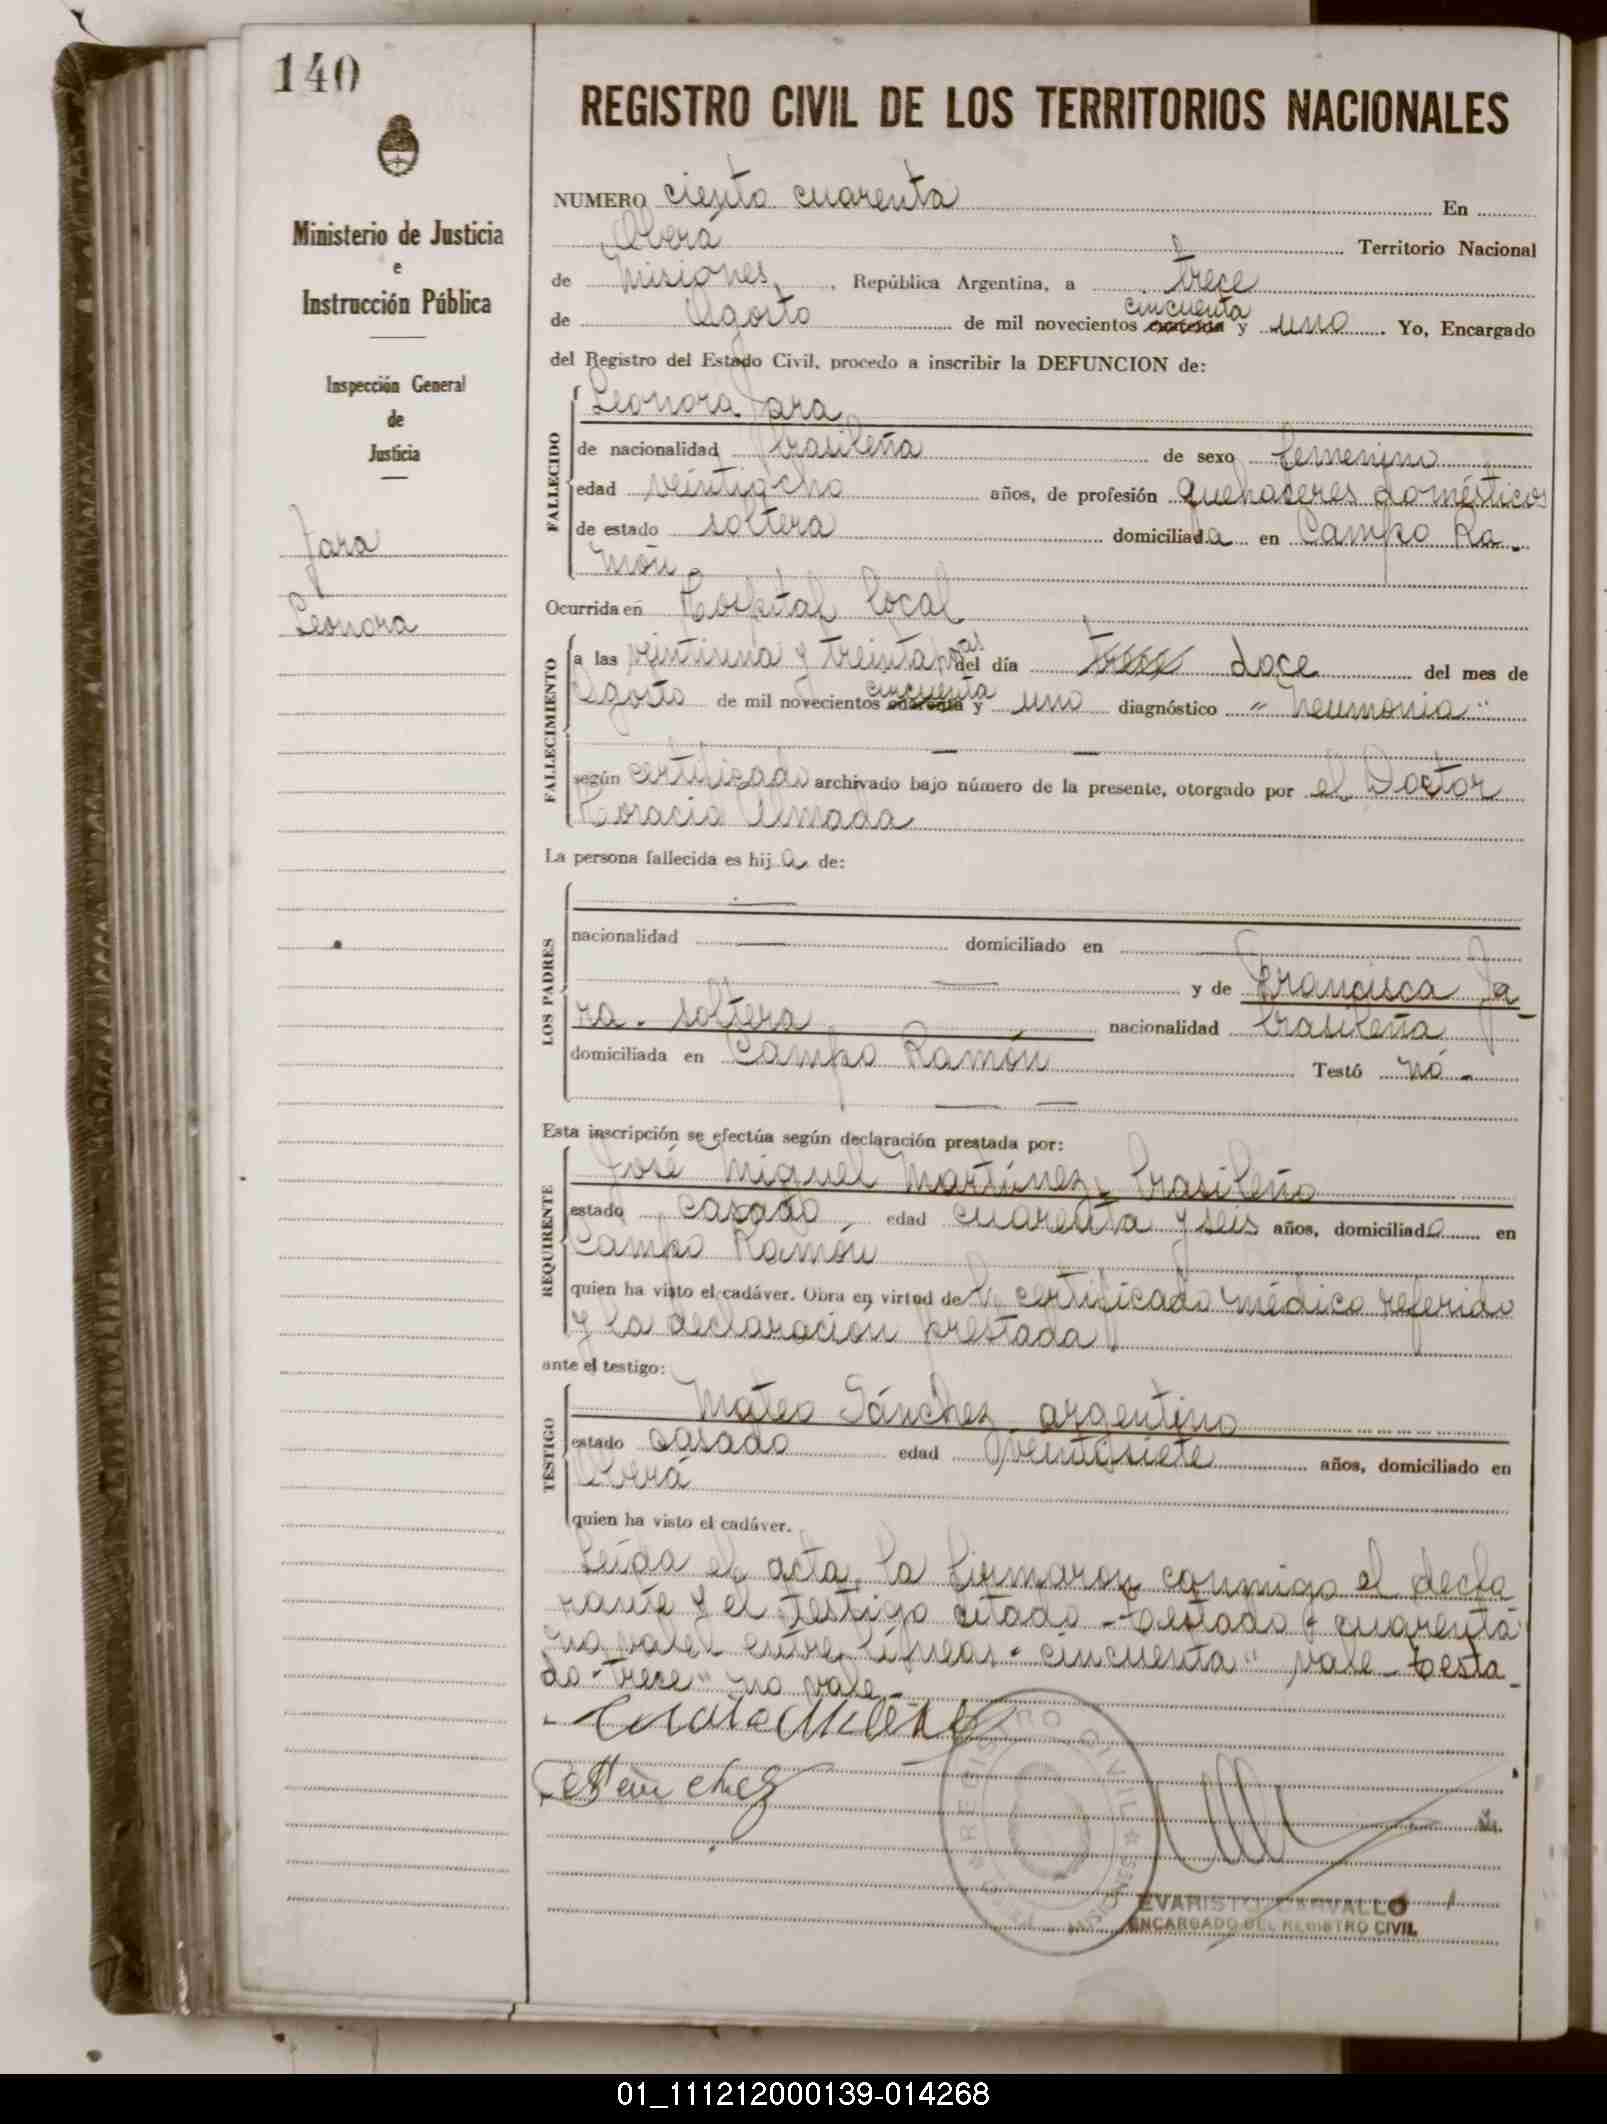 140
Ministerio de Justicia
e
Instrucción Pública
Inspección General
de
Justicia
Jara
Leonora
REGISTRO CIVIL DE LOS TERRITORIOS NACIONALES
NUMERO ciento cuarenta En
Oberá Territorio Nacional
de Misiones, República Argentina, a trece
cincuenta
de Agosto de mil novecientos cuarenta y uno. Yo, Encargado
del Registro del Estado Civil, procedo a inscribir la DEFUNCION de:
FALLECIDO
Leonora Jara
de nacionalidad brasileña de sexo femenino
edad veintiocho años, de profesión quehaceres domésticos
de estado soltera domiciliada en Campo Ra-
món
Ocurrida en Hospital local
FALLECIMIENTO
a las veintiuna y treinta horas del día trece doce del mes de
cincuenta
Agosto de mil novecientos cuarenta y uno diagnóstico "neumonia"
según certificado archivado bajo número de la presente, otorgado por el Doctor
Horacio Almada
La persona fallecida es hija de:
LOS PADRES
nacionalidad domiciliado en
y de Francisca Ja-
ra. soltera nacionalidad brasileña
domiciliada en Campo Ramón Testó nó.-
Esta inscripción se efectúa según declaración prestada por:
REQUIRENTE
José Miguel Martínez, brasileño
estado casado, edad cuarenta y seis años, domiciliado en
Campo Ramón
quien ha visto el cadáver. Obra en virtud de certificado médico referido
y la declaración prestada
ante el testigo:
TESTIGO
Mateo Sánchez argentino
estado casado edad veintisiete años, domiciliado en
Oberá
quien ha visto el cadáver.
Leída el acta, la firmaron conmigo el decla
rante y el testigo citado - Testado "cuarenta"
no vale, entre líneas "cincuenta" vale - testa-
do "trece" no vale.-
Sanchez
REGISTRO CIVIL
MISIONES
EVARISTO CARVALLO
ENCARGADO DEL REGISTRO CIVIL
01_111212000139-014268